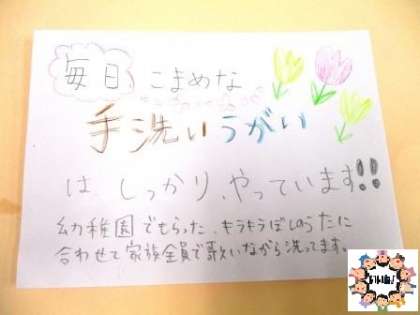 毎日、こまめな
手洗いうがい
は、しっかり、やっています!!
幼稚園でもらった、キラキラぼしのうたに
合わせて家族全員で歌いながら洗ってます。
いいね♪